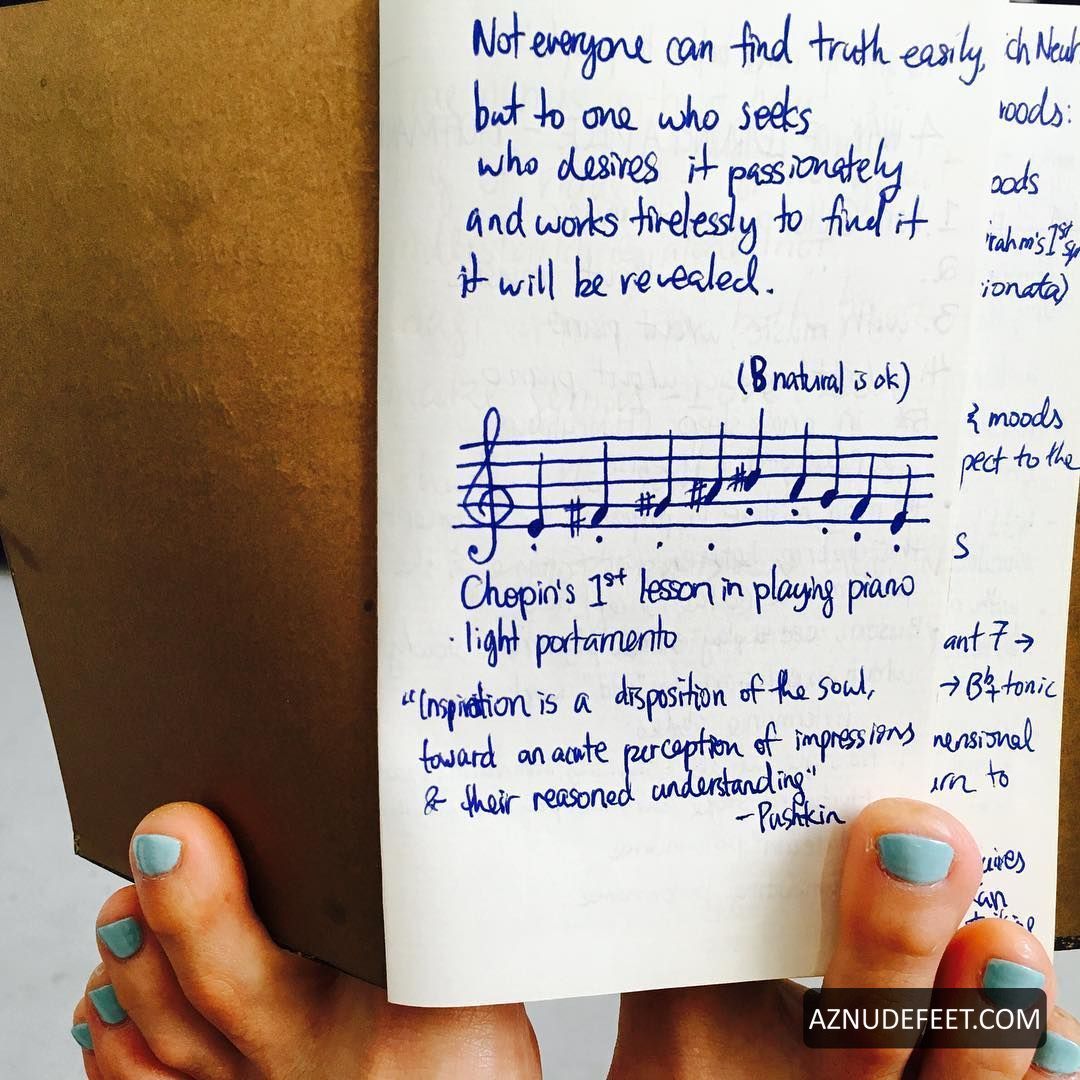 Not everyone can find truth easily,
but to one who seeks
who desires it passionately
and works tirelessly to find it
it will be revealed.
(B natural is ok)
Chopin's 1st lesson in playing piano
· light portamento
"Inspiration is a disposition of the soul,
toward an acute perception of impressions
& their reasoned understanding"
-Pushkin
ich Neuh
roods:
oods
rahm's 1st Sy
ionata)
& moods
pect to the
s
ant 7 →
→ B♭+ tonic
nensional
urn to
uires
an
AZNUDEFEET.COM